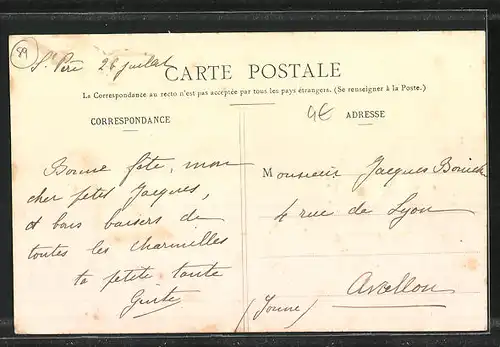 89
St Père 26 juillet
CARTE POSTALE
La Correspondance au recto n'est pas acceptée par tous les pays étrangers. (Se renseigner à la Poste.)
4€
CORRESPONDANCE
ADRESSE
Bonne fête, mon
cher petit Jacques,
et bons baisers de
toutes les charmilles
ta petite tante
Guite
Monsieur Jacques
4 rue de Lyon
Avallon
(Yonne)